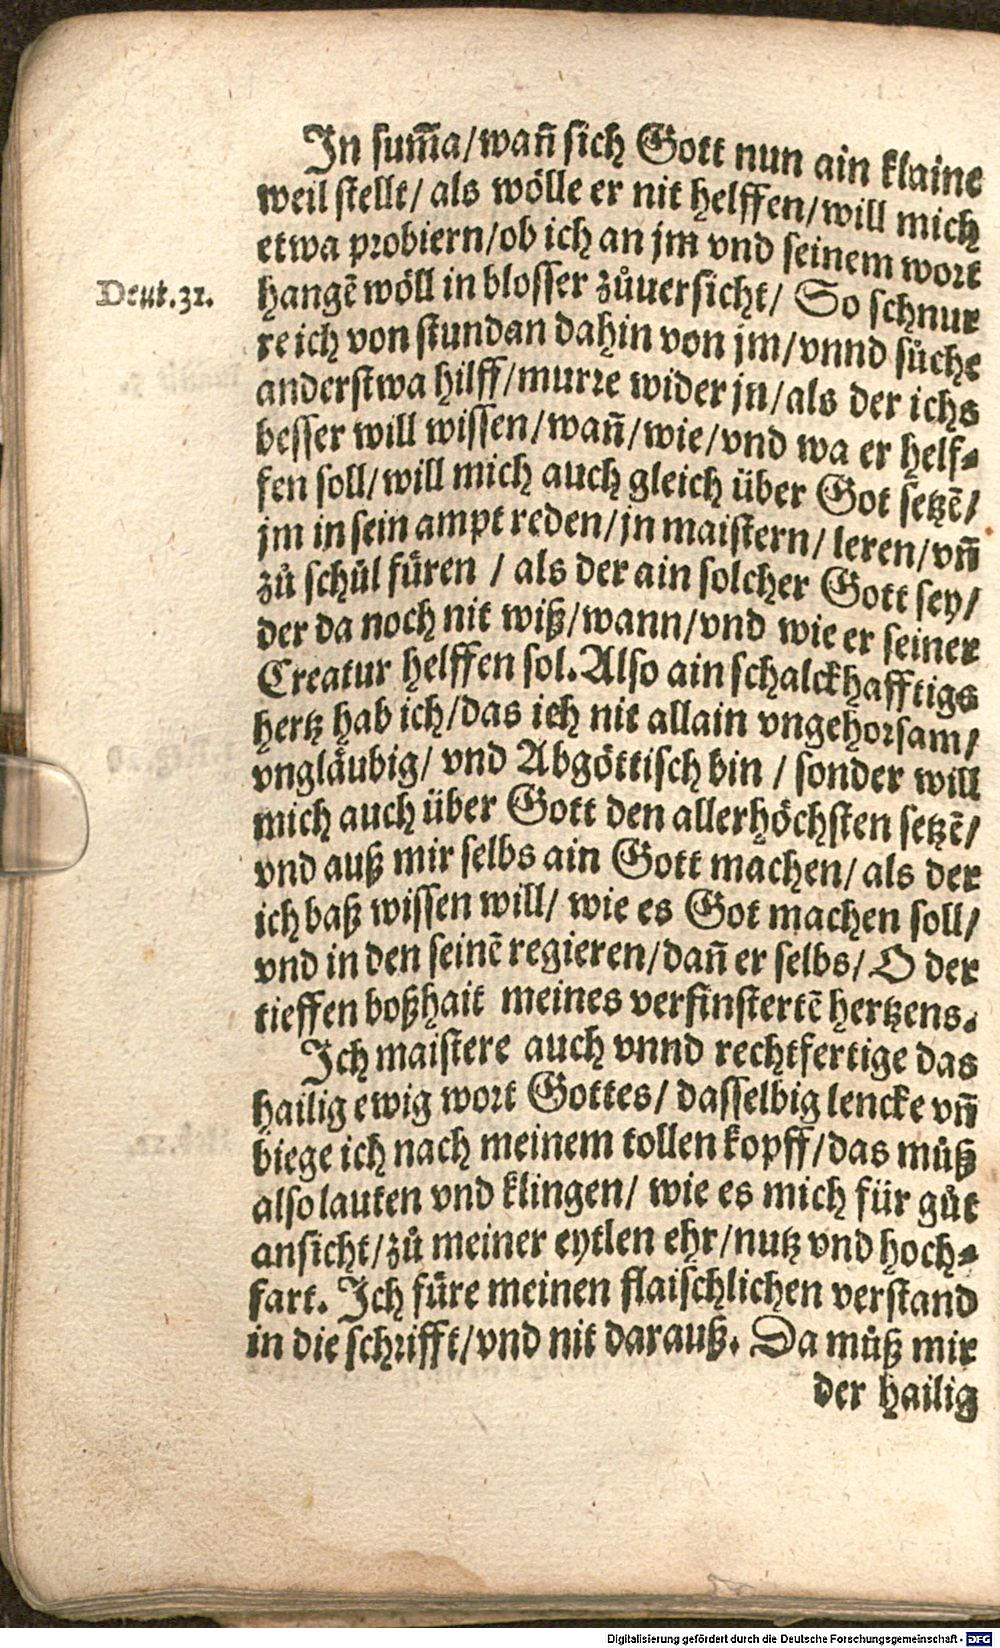 In sum̄a/wañ sich Gott nun ain klaine
weil stellt/ als wölle er nit helffen/will mich
etwa probiern/ob ich an jm vnd seinem wort
Deut.31.
hangẽ wöll in blosser zůuersicht/ So schnur
re ich von stundan dahin von jm/vnnd sůche
anderstwa hilff/murre wider jn/als der ichs
besser will wissen/wañ/wie/vnd wa er helf-
fen soll/will mich auch gleich über Got setzẽ/
jm in sein ampt reden/jn maistern/ leren/vñ
zů schůl fůren / als der ain solcher Gott sey/
der da noch nit wiß/wann/vnd wie er seiner
Creatur helffen sol.Also ain schalckhafftigs
hertz hab ich/das ich nit allain vngehorsam/
vngläubig/ vnd Abgöttisch bin / sonder will
mich auch über Gott den allerhöchsten setzẽ/
vnd auß mir selbs ain Gott machen/ als der
ich baß wissen will/ wie es Got machen soll/
vnd in den seinẽ regieren/dañ er selbs/ O der
tieffen boßhait meines verfinstertẽ hertzens.
Ich maistere auch vnnd rechtfertige das
hailig ewig wort Gottes/ dasselbig lencke vñ
biege ich nach meinem tollen kopff/das můß
also lauten vnd klingen/ wie es mich für gůt
ansicht/zů meiner eytlen ehr/nutz vnd hoch-
fart. Ich fůre meinen flaischlichen verstand
in die schrifft/vnd nit darauß. Da můß mir
der hailig
Digitalisierung gefördert durch die Deutsche Forschungsgemeinschaft - DFG